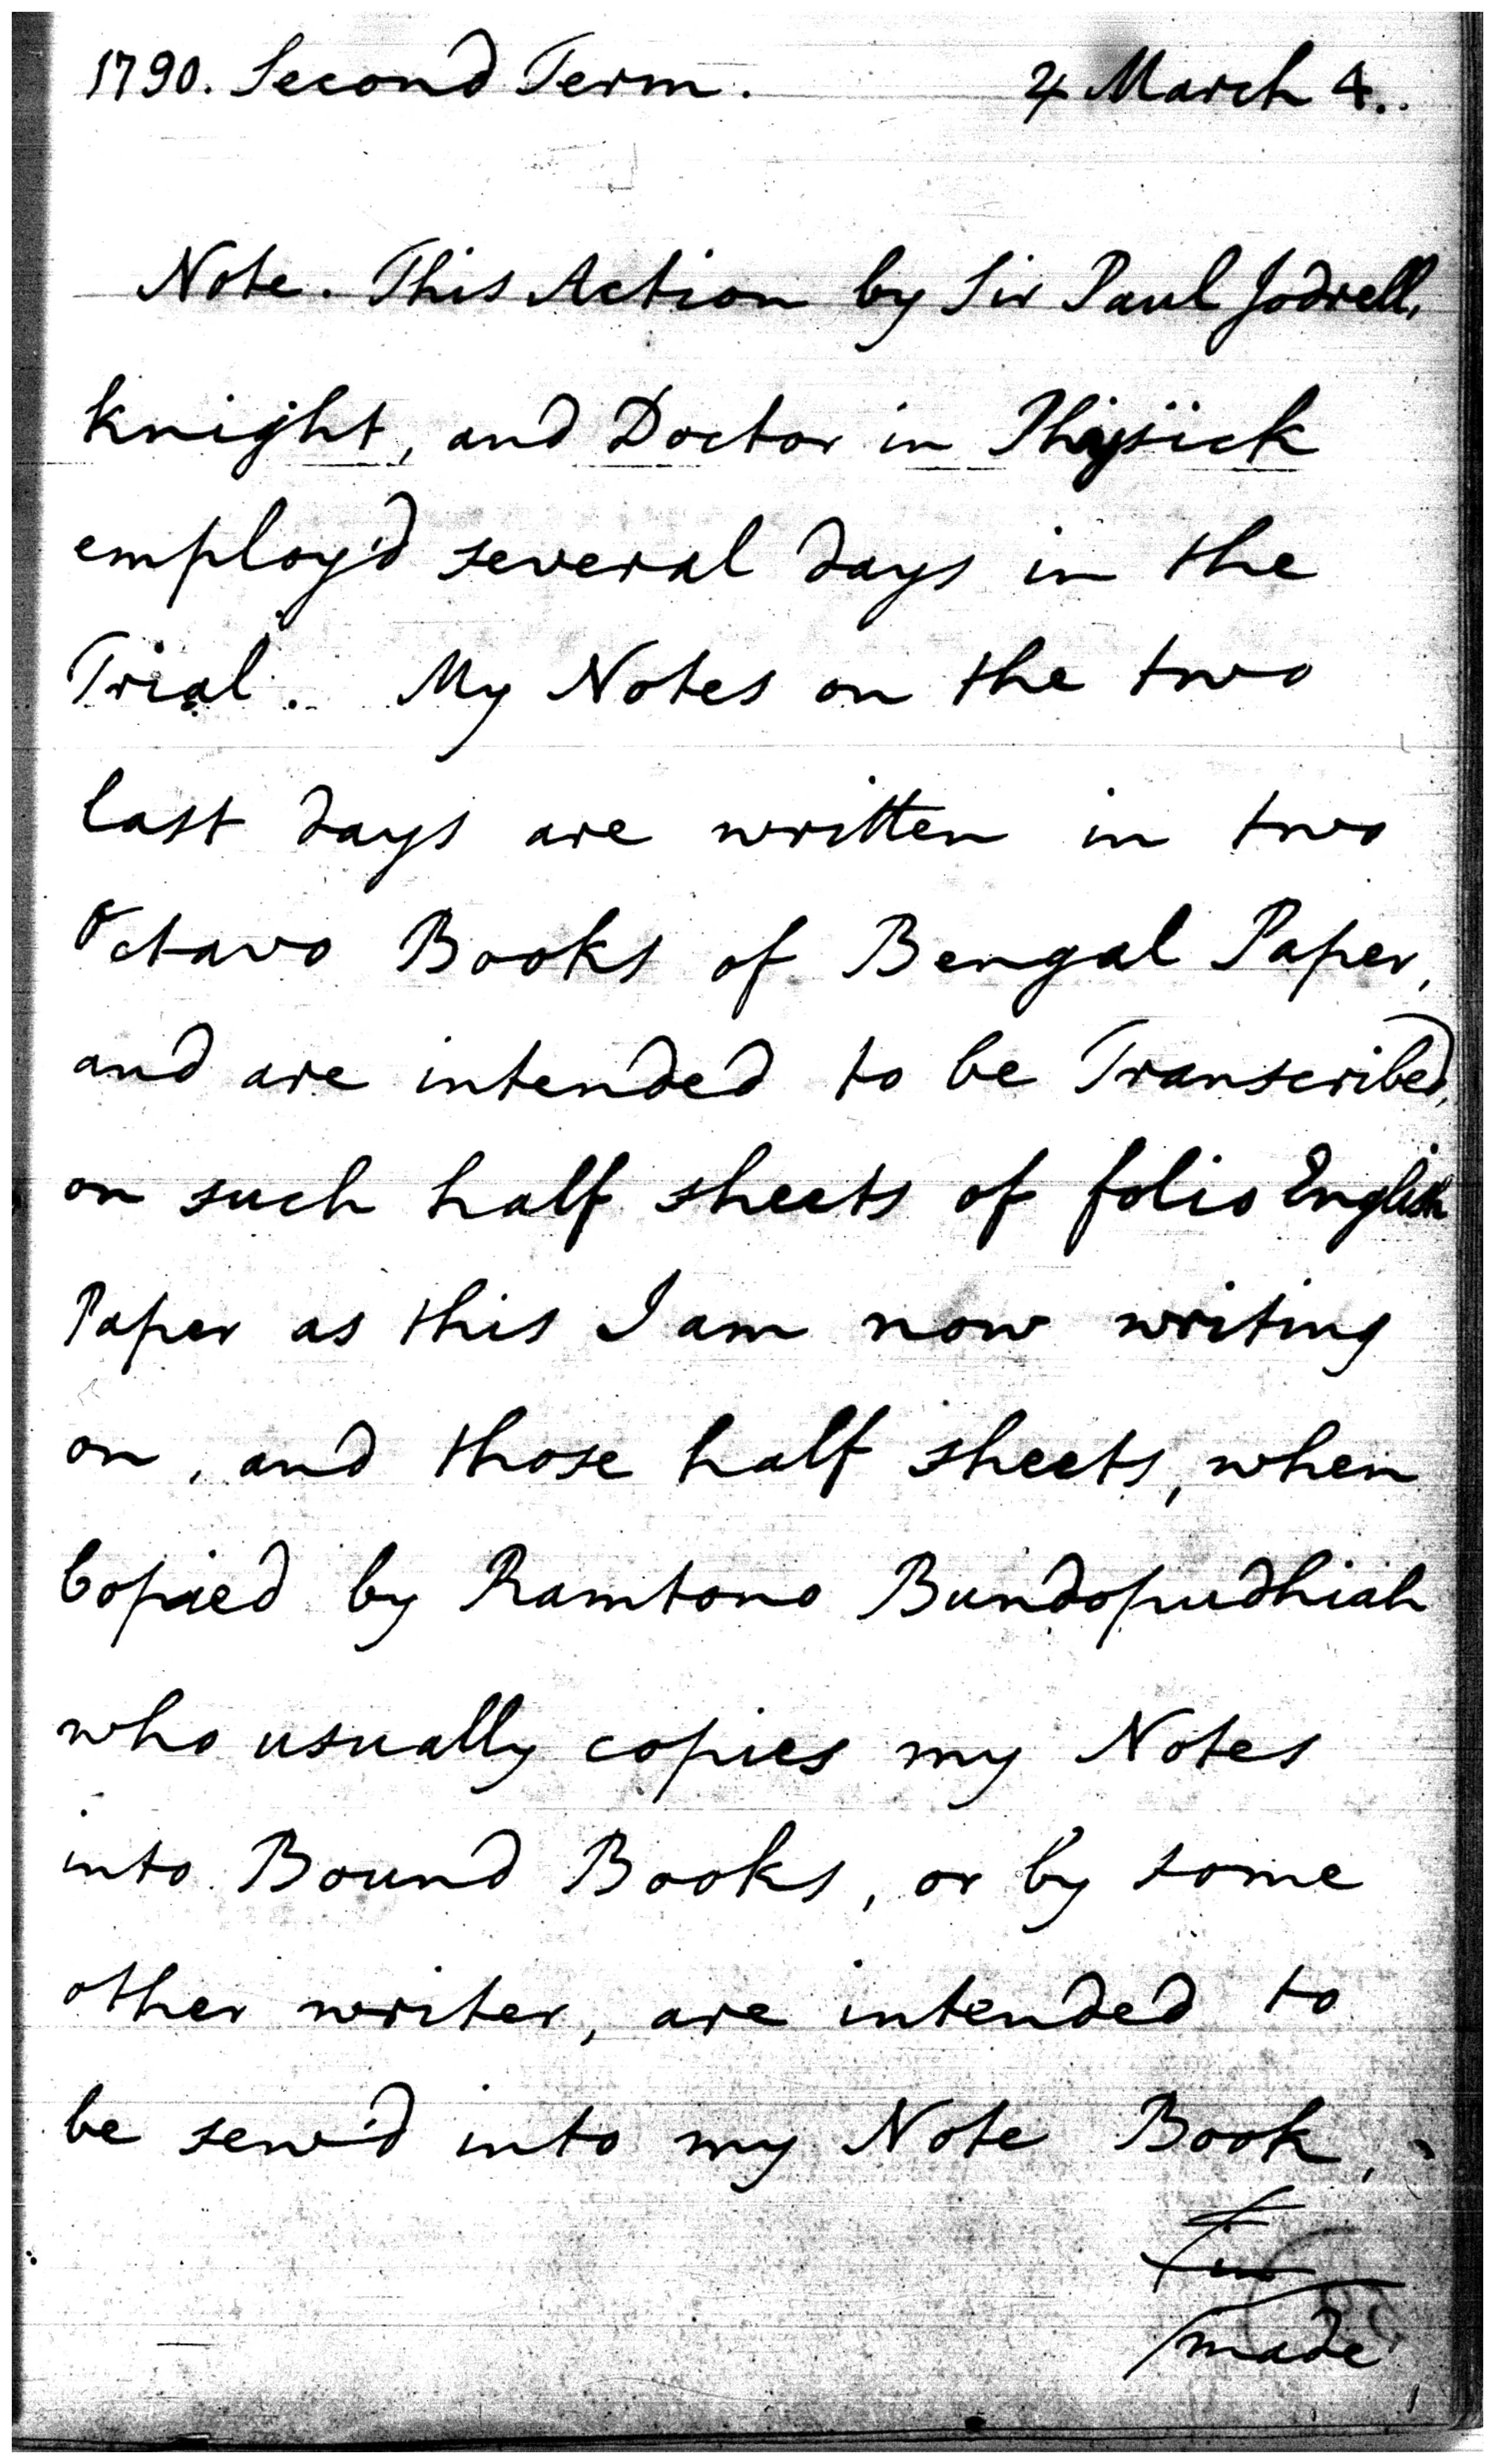 1790. Second Term. ♃ March 4..
Note. This Action by Sir Paul Jodrell,
knight, and Doctor in Physick
employ'd several days in the
Trial. My Notes on the two
last days are written in two
Octavo Books of Bengal Paper,
and are intended to be Transcribed,
on such half sheets of folio English
Paper as this I am now writing
on, and those half sheets, when
Copied by Ramtono Bundopudhiah
who usually copies my Notes
into Bound Books, or by some
other writer, are intended to
be sew'd into my Note Book,
made